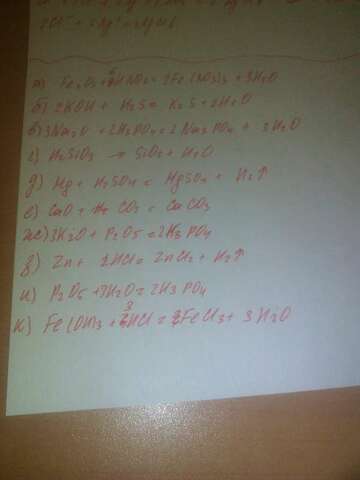 2Cl⁻ + 2Ag⁺ = 2AgCl↓
а) Fe₂O₃ + 6HNO₃ = 2Fe(NO₃)₃ + 3H₂O
б) 2KOH + H₂S = K₂S + 2H₂O
в) 3Na₂O + 2H₃PO₄ = 2Na₃PO₄ + 3H₂O
г) H₂SiO₃ → SiO₂ + H₂O
д) Mg + H₂SO₄ = MgSO₄ + H₂↑
е) CaO + CO₂ = CaCO₃
ж) 3K₂O + P₂O₅ = 2K₃PO₄
з) Zn + 2HCl = ZnCl₂ + H₂↑
и) P₂O₅ + 3H₂O = 2H₃PO₄
к) Fe(OH)₃ + 3HCl = FeCl₃ + 3H₂O